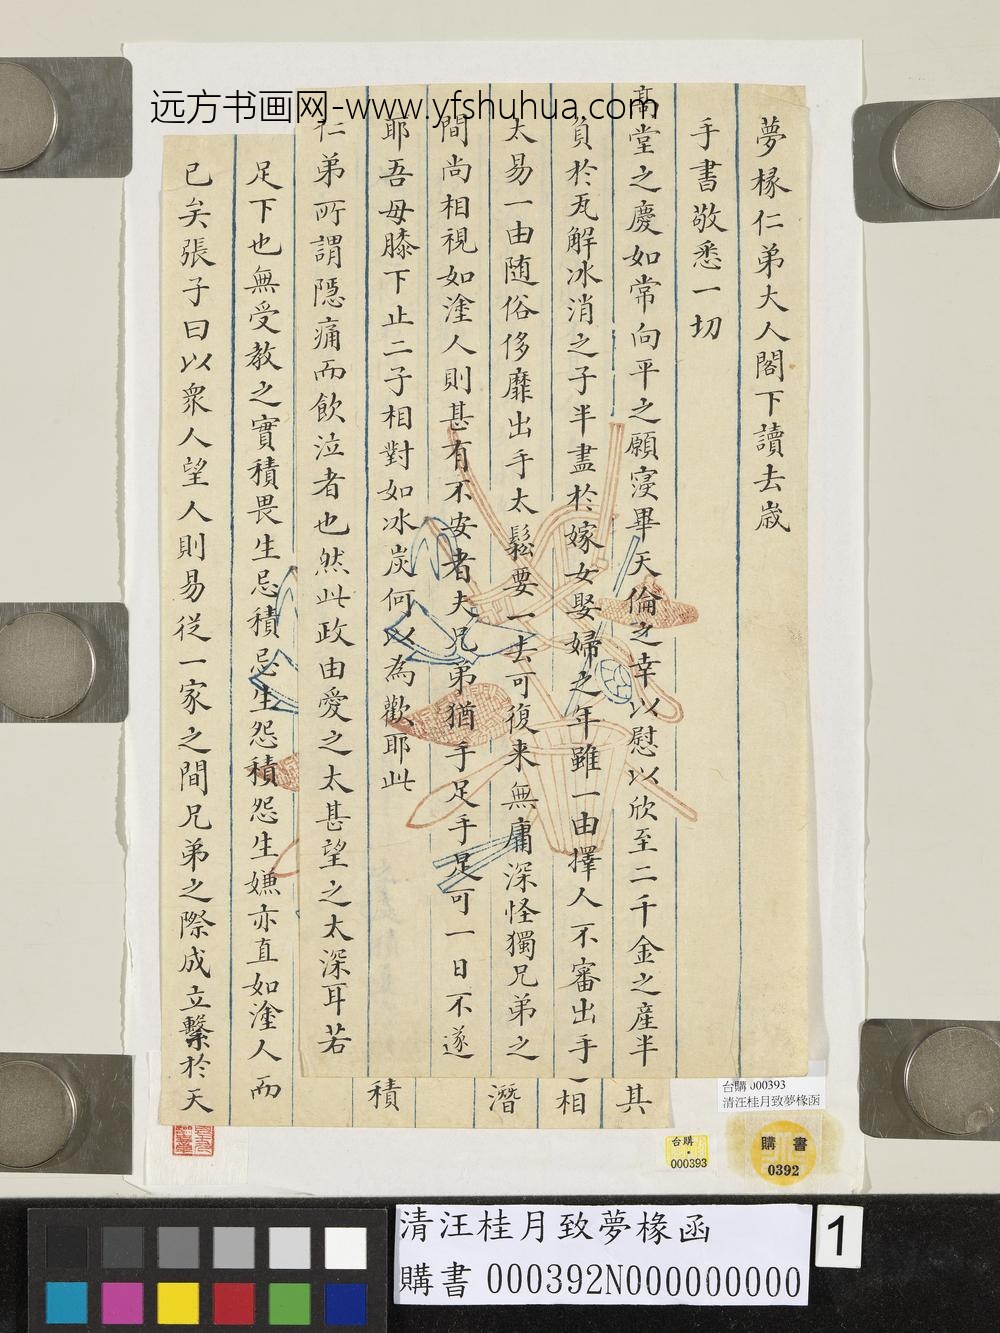 远方书画网-www.yfshuhua.com
夢椽仁弟大人閣下讀去歲
手書敬悉一切
高堂之慶如常向平之願寖畢天倫之幸以慰以欣至二千金之產半
負於瓦解冰消之子半盡於嫁女娶婦之年雖一由擇人不審出手
太易一由随俗侈靡出手太鬆要一去可復来無庸深怪獨兄弟之
間尚相視如塗人則甚有不安者夫兄弟猶手足手足可一日不遂
耶吾母膝下止二子相對如冰炭何以為歡耶此
仁弟所謂隱痛而飲泣者也然此政由愛之太甚望之太深耳若
足下也無受教之實積畏生忌積忌生怨積怨生嫌亦直如塗人而
已矣張子曰以衆人望人則易從一家之間兄弟之際成立繫於天
其
相
潛
積
台購 000393
清汪桂月致夢椽函
台購
000393
購 書
0392
清汪桂月致夢椽函
購書 000392N000000000
1